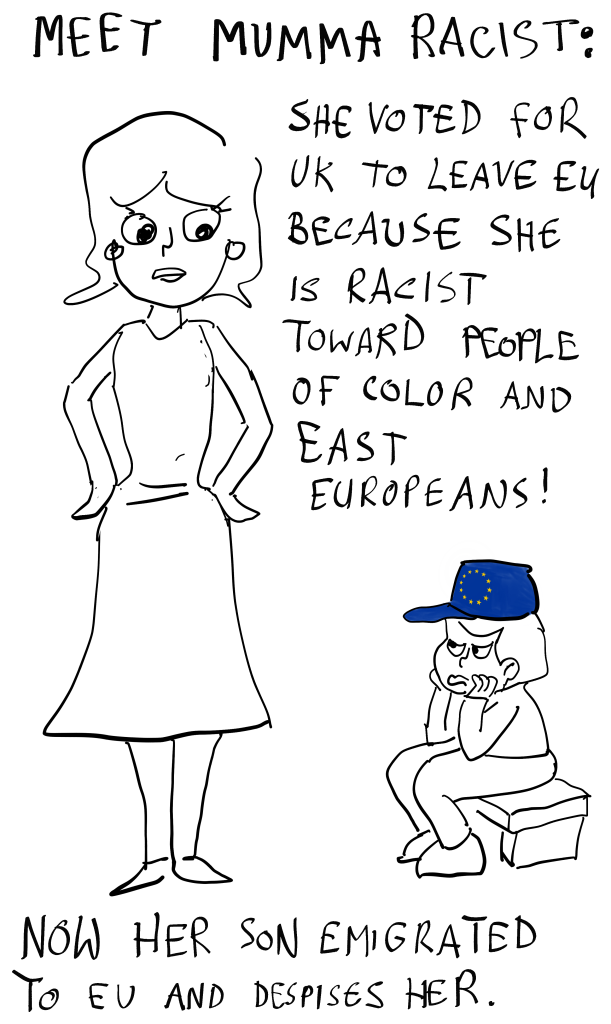 MEET MUMMA RACIST:
SHE VOTED FOR
UK TO LEAVE EU
BECAUSE SHE
IS RACIST
TOWARD PEOPLE
OF COLOR AND
EAST
EUROPEANS!
NOW HER SON EMIGRATED
TO EU AND DESPISES HER.